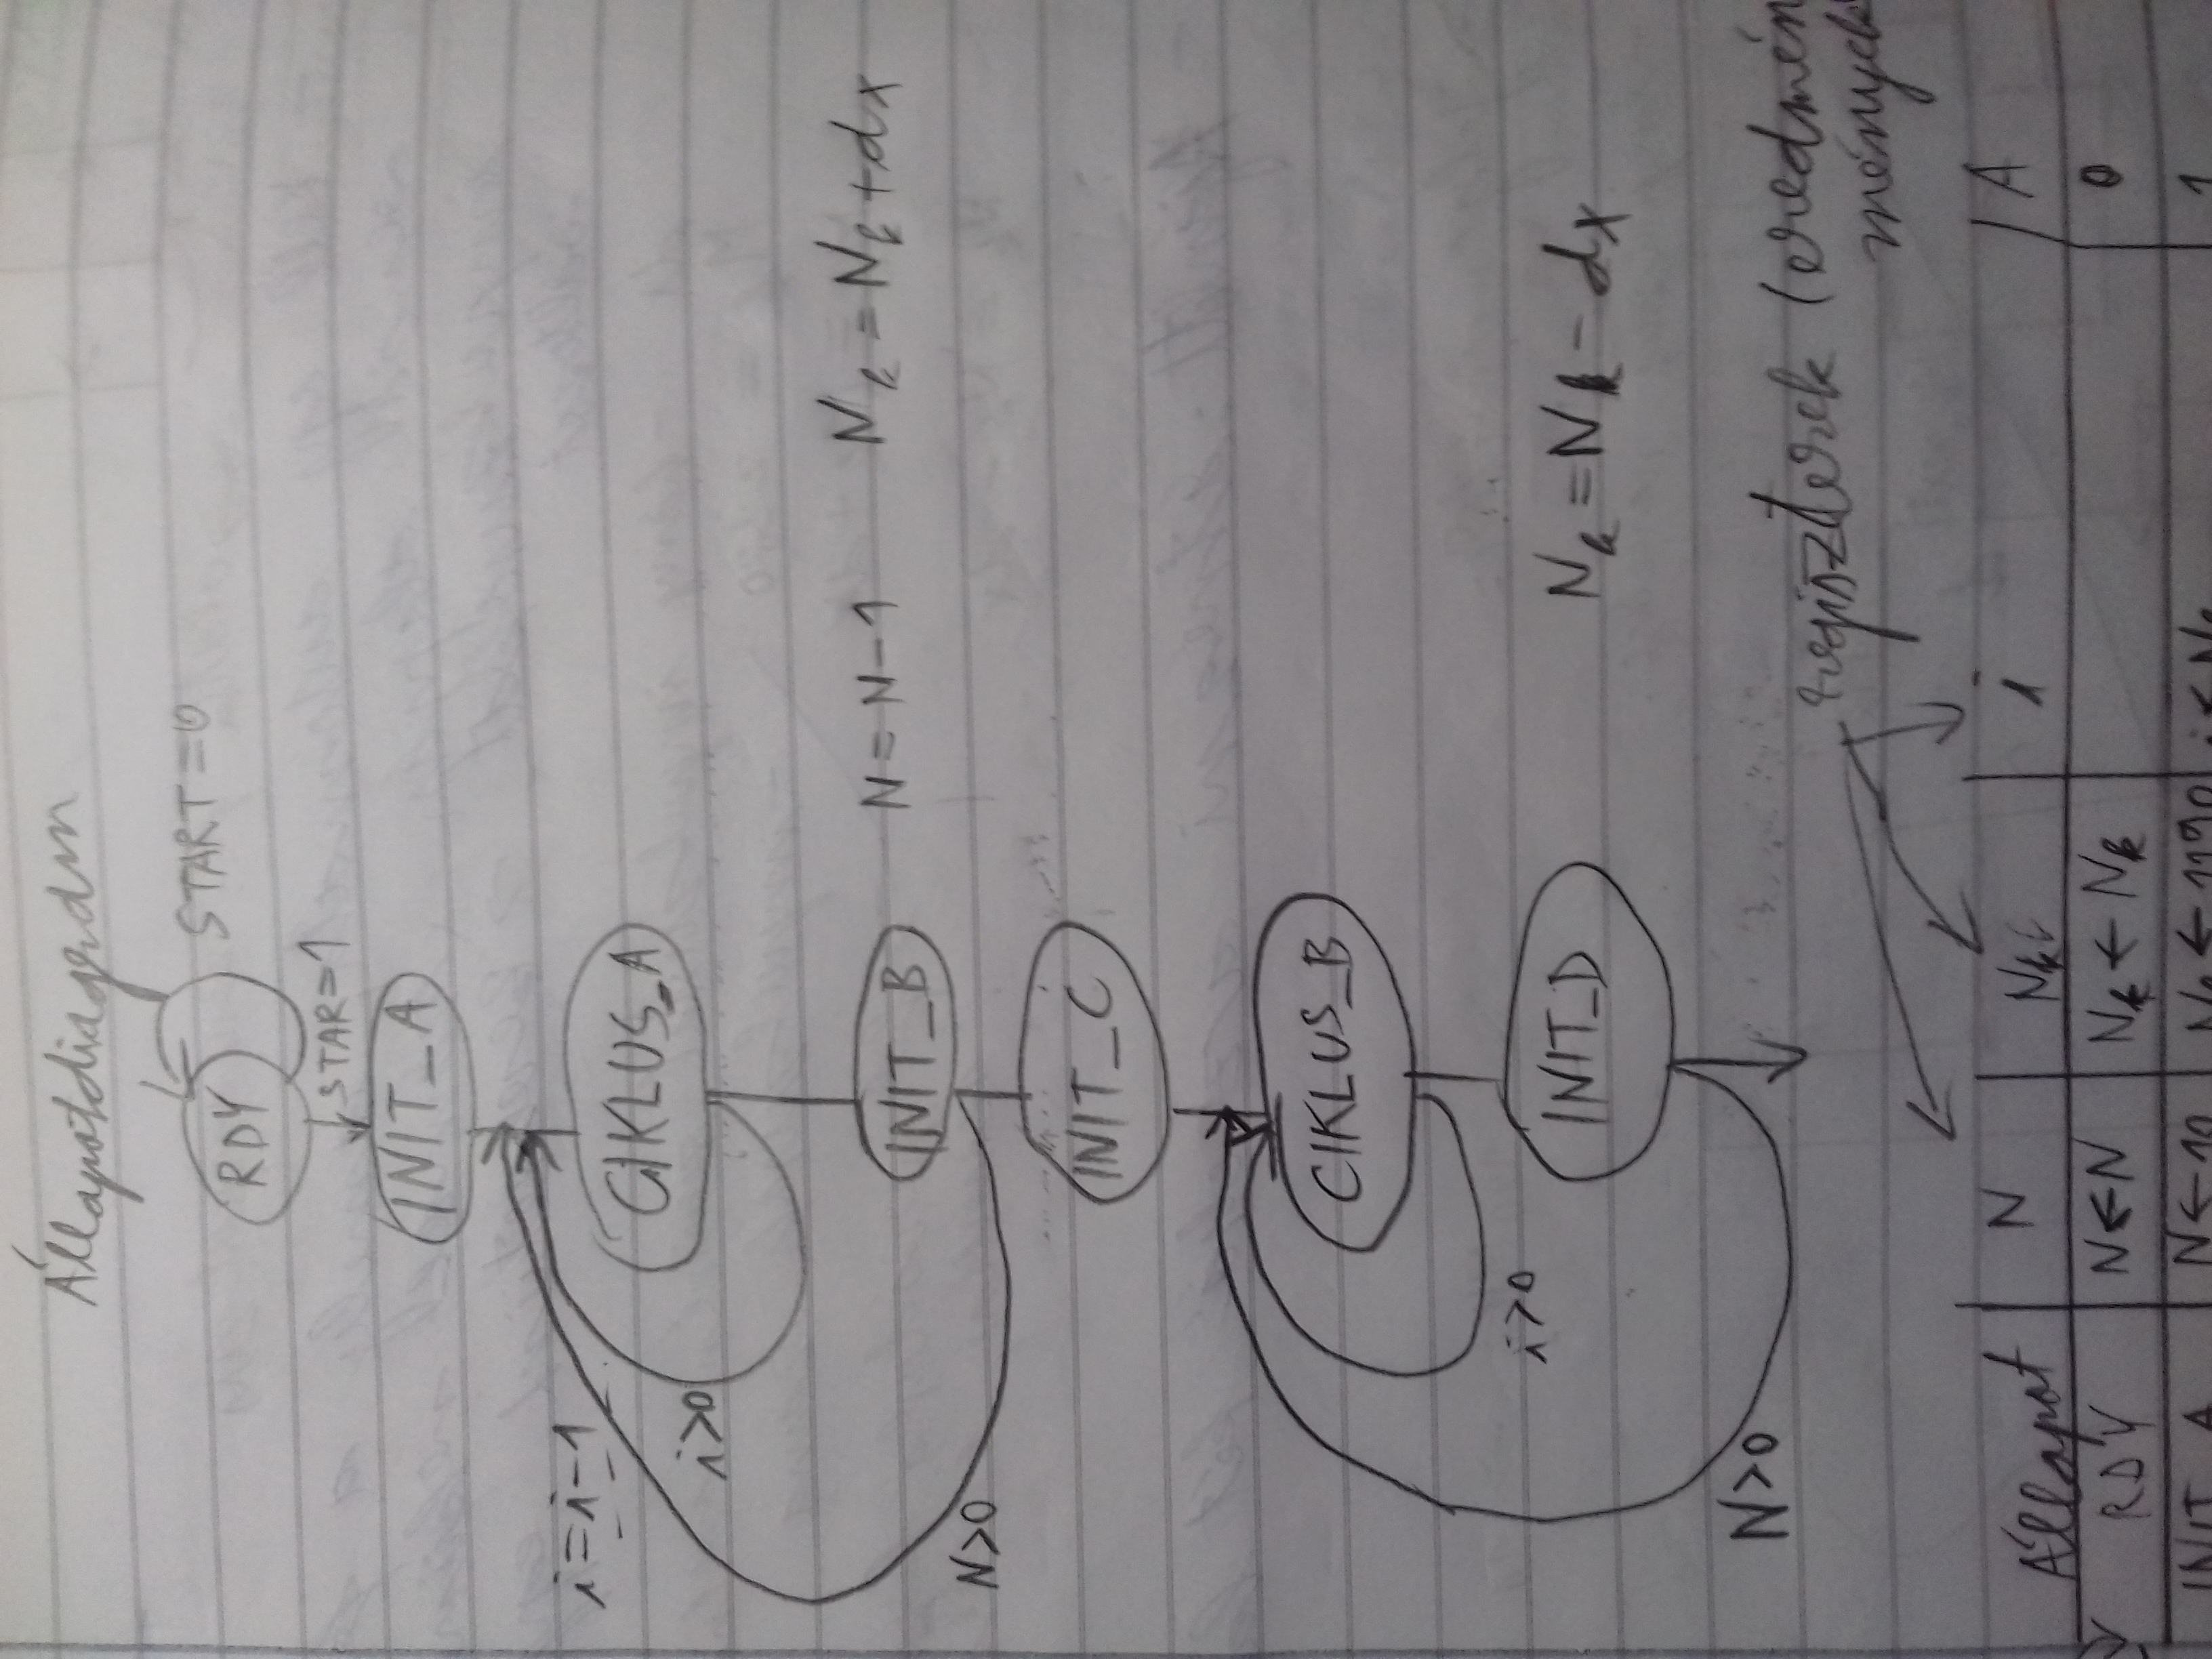 Állapotdiagram
START=0
RDY
STAR=1
INIT_A
i=i-1
CIKLUS_A
i>0
INIT_B N=N-1 Nk=Nk+dx
N>0
INIT_C
CIKLUS_B
i>0
INIT_D Nk=Nk-dx
N>0
regiszterek (eredmén
mények
Állapot N Nk i A
RDY N←N Nk←Nk 0
INIT_A N←10 Nk←1190 i←Nk 1